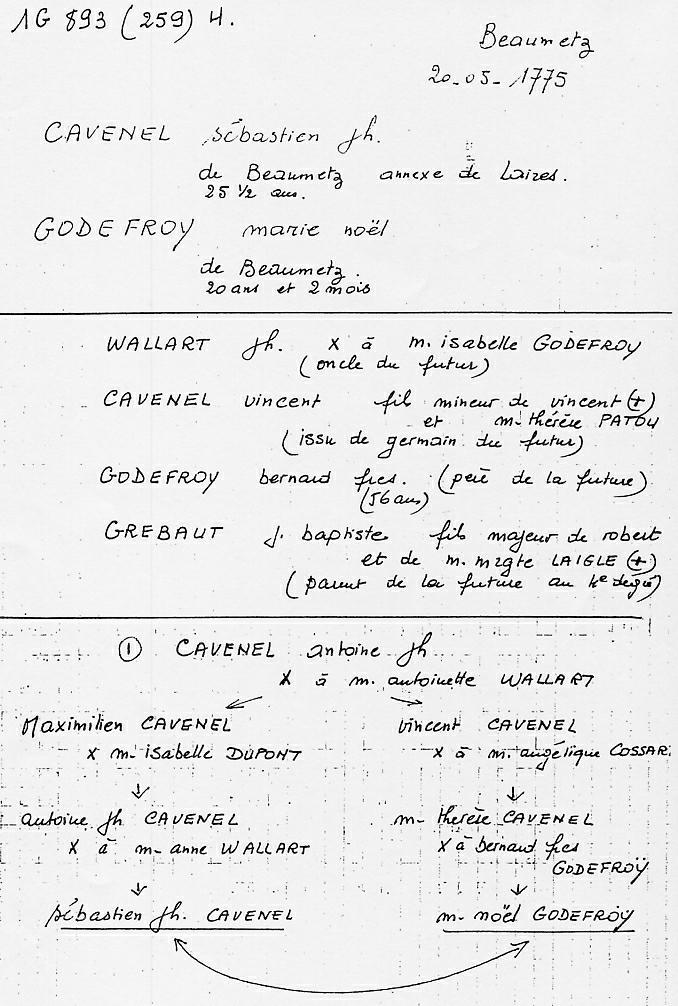 1G 893 (259) 4.
Beaumetz
20-05-1775
CAVENEL sébastien jh.
de Beaumetz annexe de Laires.
25 1/2 ans.
GODEFROY marie noël
de Beaumetz.
20 ans et 2 mois
WALLART jh. x à m. isabelle GODEFROY
(oncle du futur)
CAVENEL vincent fils mineur de vincent (+)
et m. thérèse PATOU
(issu de germain du futur)
GODEFROY bernard fres. (père de la future)
(56 ans)
GREBAUT j. baptiste fils majeur de robert
et de m. mgte LAIGLE (+)
(parent de la future au 4e degré)
① CAVENEL antoine jh
x à m. antoinette WALLART
Maximilien CAVENEL vincent CAVENEL
x m. isabelle DUPONT x à m. angélique COSSAR
antoine jh CAVENEL m- thérèse CAVENEL
x à m- anne WALLART x à bernard fres
GODEFROY
sébastien jh. CAVENEL m- noël GODEFROY